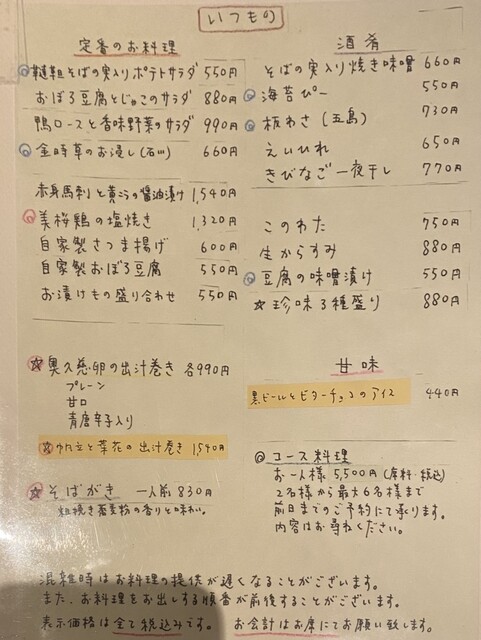 いつもの
定番のお料理
韃靼そばの実入りポテトサラダ 550円
おぼろ豆腐とじゃこのサラダ 880円
鴨ロースと香味野菜のサラダ 990円
金時草のお浸し(石川) 660円
赤身馬刺と黄こうの醤油漬け 1,540円
美桜鶏の塩焼き 1,320円
自家製さつま揚げ 600円
自家製おぼろ豆腐 550円
お漬けもの盛り合わせ 550円
☆奥久慈卵の出汁巻き 各990円
プレーン
甘口
青唐辛子入り
☆帆立と菜花の出汁巻き 1540円
☆そばがき 一人前 830円
粗挽き蕎麦粉の香りと味わい。
酒肴
そばの実入り焼き味噌 660円
海苔ぴー 550円
板わさ(五島) 730円
えいひれ 650円
きびなご一夜干し 770円
このわた 750円
生からすみ 880円
豆腐の味噌漬け 550円
☆珍味3種盛り 880円
甘味
黒ビールとビターチョコのアイス 440円
◎コース料理
お一人様 5,500円(席料・税込)
2名様から最大6名様まで
前日までのご予約にて承ります。
内容はお尋ねください。
混雑時はお料理の提供が遅くなることがございます。
また、お料理をお出しする順番が前後することがございます。
表示価格は全て税込みです。 お会計はお席にてお願い致します。